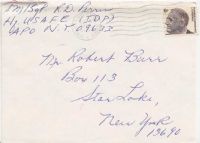 M/Sgt R.D. Perrin
Hq USAFE (IDP)
APO N.Y. 09633
Mr Robert Burr
Box 113
Star Lake,
New York
13690